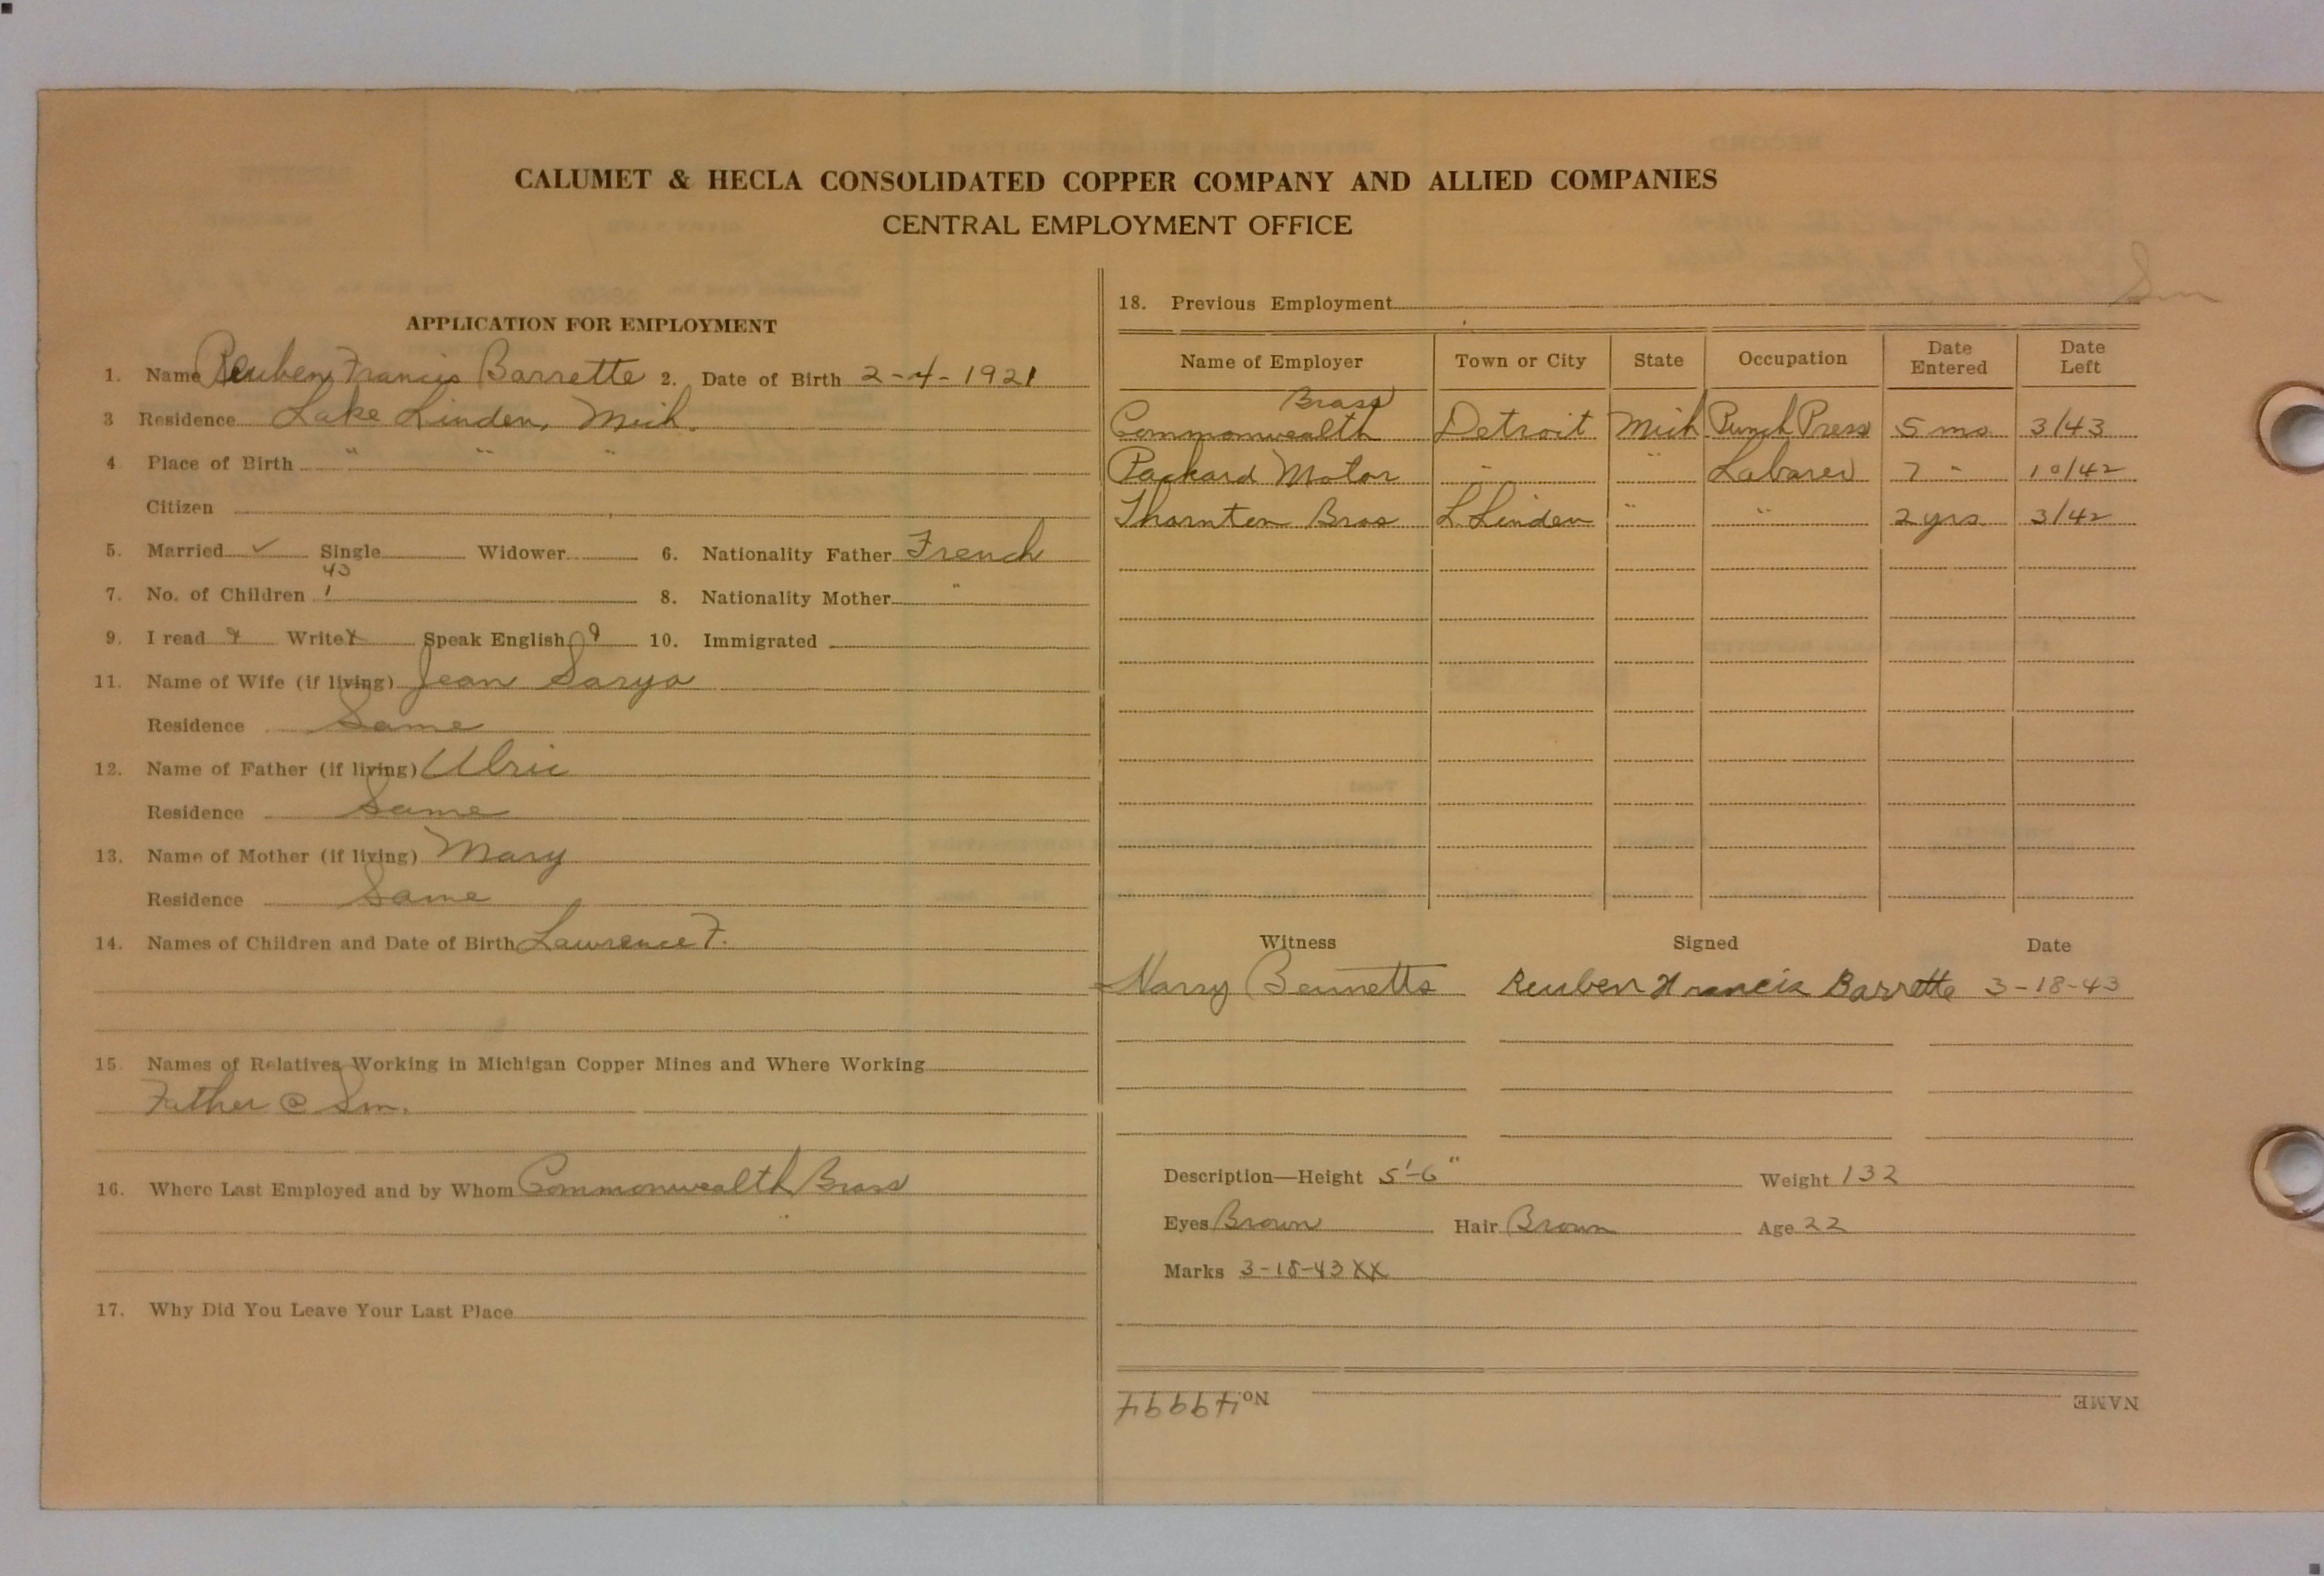 CALUMET & HECLA CONSOLIDATED COPPER COMPANY AND ALLIED COMPANIES
CENTRAL EMPLOYMENT OFFICE
APPLICATION FOR EMPLOYMENT
1. Name Reuben Francis Barrette 2. Date of Birth 2-4-1921
3 Residence Lake Linden, Mich.
4 Place of Birth " " "
Citizen
5. Married ✓ Single Widower 6. Nationality Father French
43
7. No. of Children 1 8. Nationality Mother "
9. I read Write Speak English 10. Immigrated
11. Name of Wife (if living) Jean
Residence Same
12. Name of Father (if living) Ulric
Residence Same
13. Name of Mother (if living) Mary
Residence Same
14. Names of Children and Date of Birth Lawrence F.
15. Names of Relatives Working in Michigan Copper Mines and Where Working
Father @ Sm.
16. Where Last Employed and by Whom Commonwealth Brass
17. Why Did You Leave Your Last Place
18. Previous Employment Sm
Name of Employer Town or City State Occupation Date Entered Date Left
Brass
Commonwealth Detroit Mich Punch Press 5 mo 3/43
Packard Motor " " Laborer 7 " 10/42
Thornton Bros L. Linden " " 2 yrs 3/42
Witness Signed Date
Harry Bennetts Reuben Francis Barrette 3-18-43
Description—Height 5'-6" Weight 132
Eyes Brown Hair Brown Age 22
Marks 3-18-43 XX
NAME No. 49994